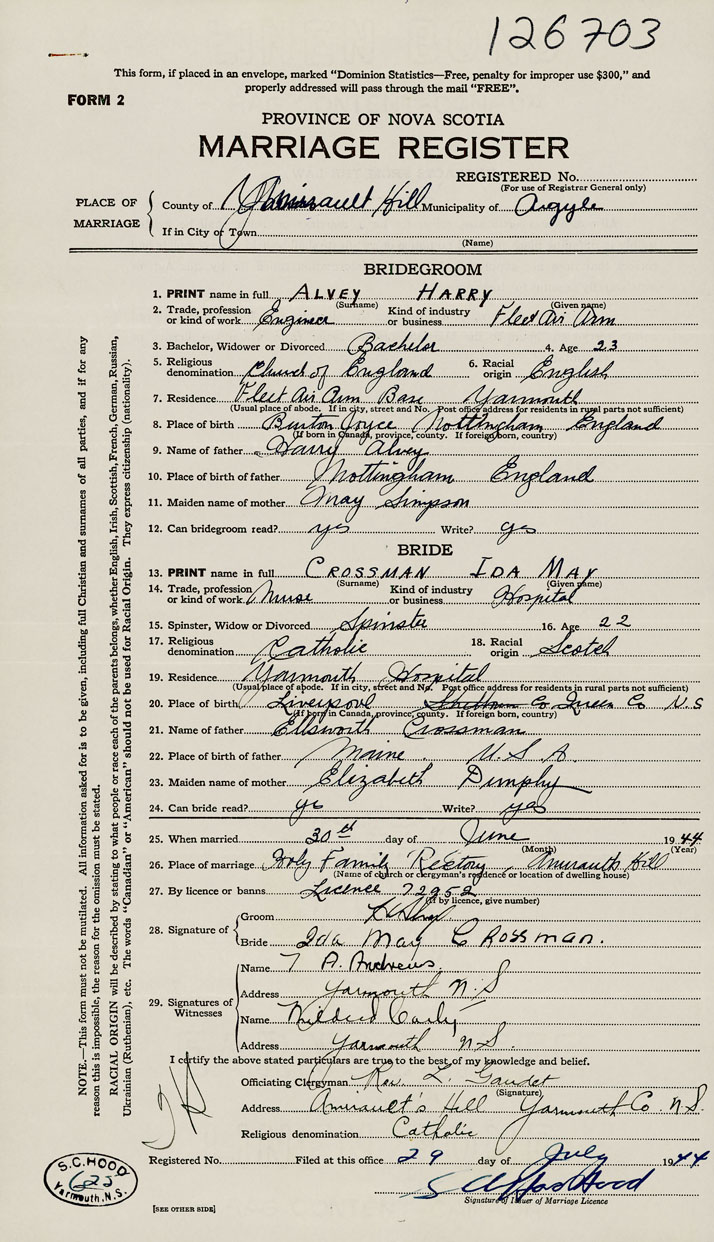 126703
This form, if placed in an envelope, marked "Dominion Statistics—Free, penalty for improper use $300," and
properly addressed will pass through the mail "FREE".
FORM 2
PROVINCE OF NOVA SCOTIA
MARRIAGE REGISTER
REGISTERED No.
(For use of Registrar General only)
PLACE OF MARRIAGE
County of Amirault Hill Municipality of Argyle
If in City or Town
(Name)
BRIDEGROOM
1. PRINT name in full ALVEY HARRY
(Surname) (Given name)
2. Trade, profession or kind of work Engineer Kind of industry or business Fleet Air Arm
3. Bachelor, Widower or Divorced Bachelor 4. Age 23
5. Religious denomination Church of England 6. Racial origin English
7. Residence Fleet Air Arm Base Yarmouth
(Usual place of abode. If in city, street and No. Post office address for residents in rural parts not sufficient)
8. Place of birth Burton Joyce Nottingham England
(If born in Canada, province, county. If foreign born, country)
9. Name of father Harry Alvey
10. Place of birth of father Nottingham England
11. Maiden name of mother May Simpson
12. Can bridegroom read? yes Write? yes
BRIDE
13. PRINT name in full CROSSMAN IDA MAY
(Surname) (Given name)
14. Trade, profession or kind of work Nurse Kind of industry or business Hospital
15. Spinster, Widow or Divorced Spinster 16. Age 22
17. Religious denomination Catholic 18. Racial origin Scotch
19. Residence Yarmouth Hospital
(Usual place of abode. If in city, street and No. Post office address for residents in rural parts not sufficient)
20. Place of birth Liverpool Shelburne Co Queen Co N.S
(If born in Canada, province, county. If foreign born, country)
21. Name of father Ellsworth Crossman
22. Place of birth of father Maine U.S.A.
23. Maiden name of mother Elizabeth Dunphy
24. Can bride read? yes Write? yes
25. When married 30th day of June 1944
(Month) (Year)
26. Place of marriage Holy Family Rectory Amiraults Hill
(Name of church or clergyman's residence or location of dwelling house)
27. By licence or banns Licence 72952
(If by licence, give number)
28. Signature of
Groom
Bride Ida May Crossman.
29. Signatures of Witnesses
Name A. Andrews
Address Yarmouth N.S
Name Mildred
Address Yarmouth N.S.
I certify the above stated particulars are true to the best of my knowledge and belief.
Officiating Clergyman Rev. L. Gaudet
(Signature)
Address Amirault's Hill Yarmouth Co. N.S.
Religious denomination Catholic
Registered No. Filed at this office 29 day of July 1944
Signature of Issuer of Marriage Licence
[SEE OTHER SIDE]
S.C. HOOD
622
Yarmouth, N.S.
NOTE.—This form must not be mutilated. All information asked for is to be given, including full Christian and surnames of all parties, and if for any
reason this is impossible, the reason for the omission must be stated.
RACIAL ORIGIN will be described by stating to what people or race each of the parents belongs, whether English, Irish, Scottish, French, German, Russian,
Ukrainian (Ruthenian), etc. The words "Canadian" or "American" should not be used for Racial Origin. They express citizenship (nationality).